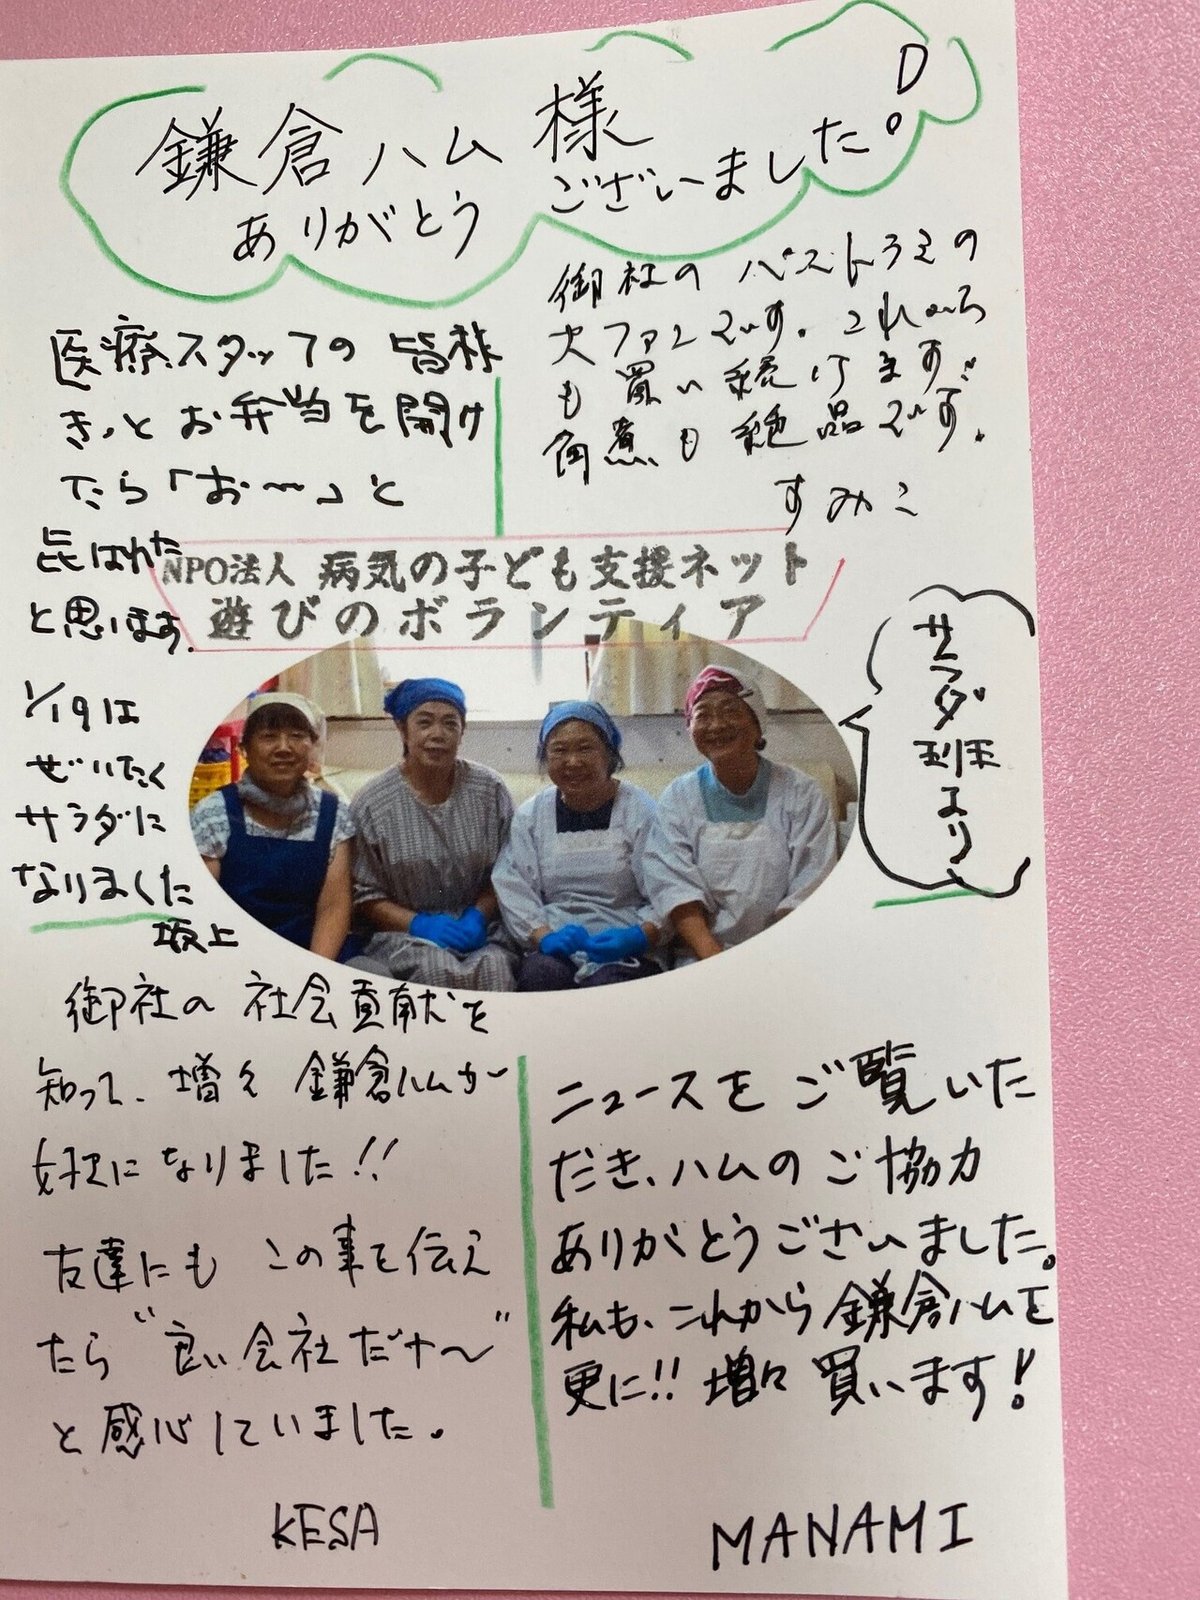 D
鎌倉ハム様
ありがとうございました。
医療スタッフの皆様
きっとお弁当を開け
たら「お〜〜」と
云はれた
と思います。
1/19は
ぜいたく
サラダに
なりました
坂上
御社のパストラミの
大ファンです。これから
も買い続けます。
角煮も絶品です。
すみこ
NPO法人 病気の子ども支援ネット
遊びのボランティア
サラダ
班より
御社の社会貢献を
知って、増々鎌倉ハムが
好きになりました!!
友達にもこの事を伝え
たら“良い会社だナ〜”
と感心していました。
KESA
ニュースをご覧いた
だき、ハムのご協力
ありがとうございました。
私も、これから鎌倉ハムを
更に!!増々買います!
MANAMI